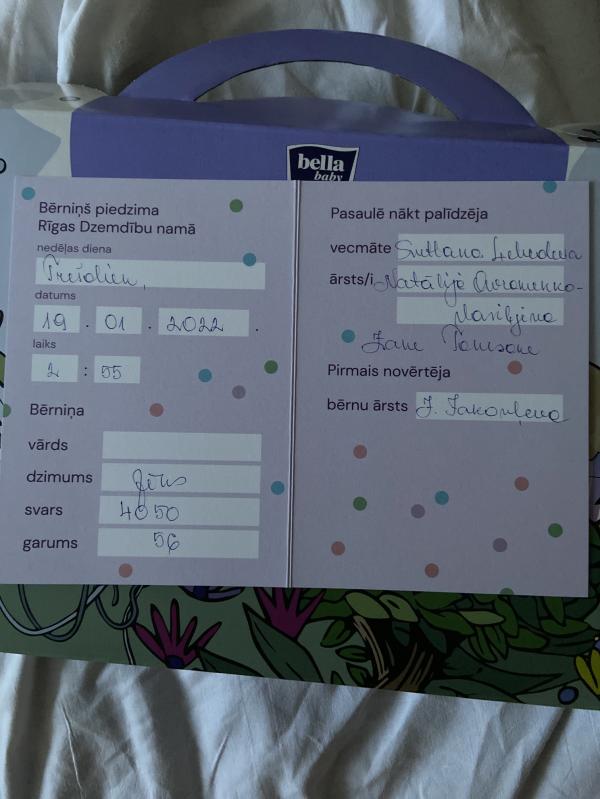 bella
baby
Bērniņš piedzima
Rīgas Dzemdību namā
nedēļas diena
Trešdien,
datums
19 . 01 . 2022 .
laiks
2 : 55
Bērniņa
vārds
dzimums
svars 4050
garums 56
Pasaulē nākt palīdzēja
vecmāte Svetlana Lebedeva
ārsts/i Natālija Avramenko-
Vasiļjeva
Zane Tomsone
Pirmais novērtēja
bērnu ārsts J. Jakovļeva